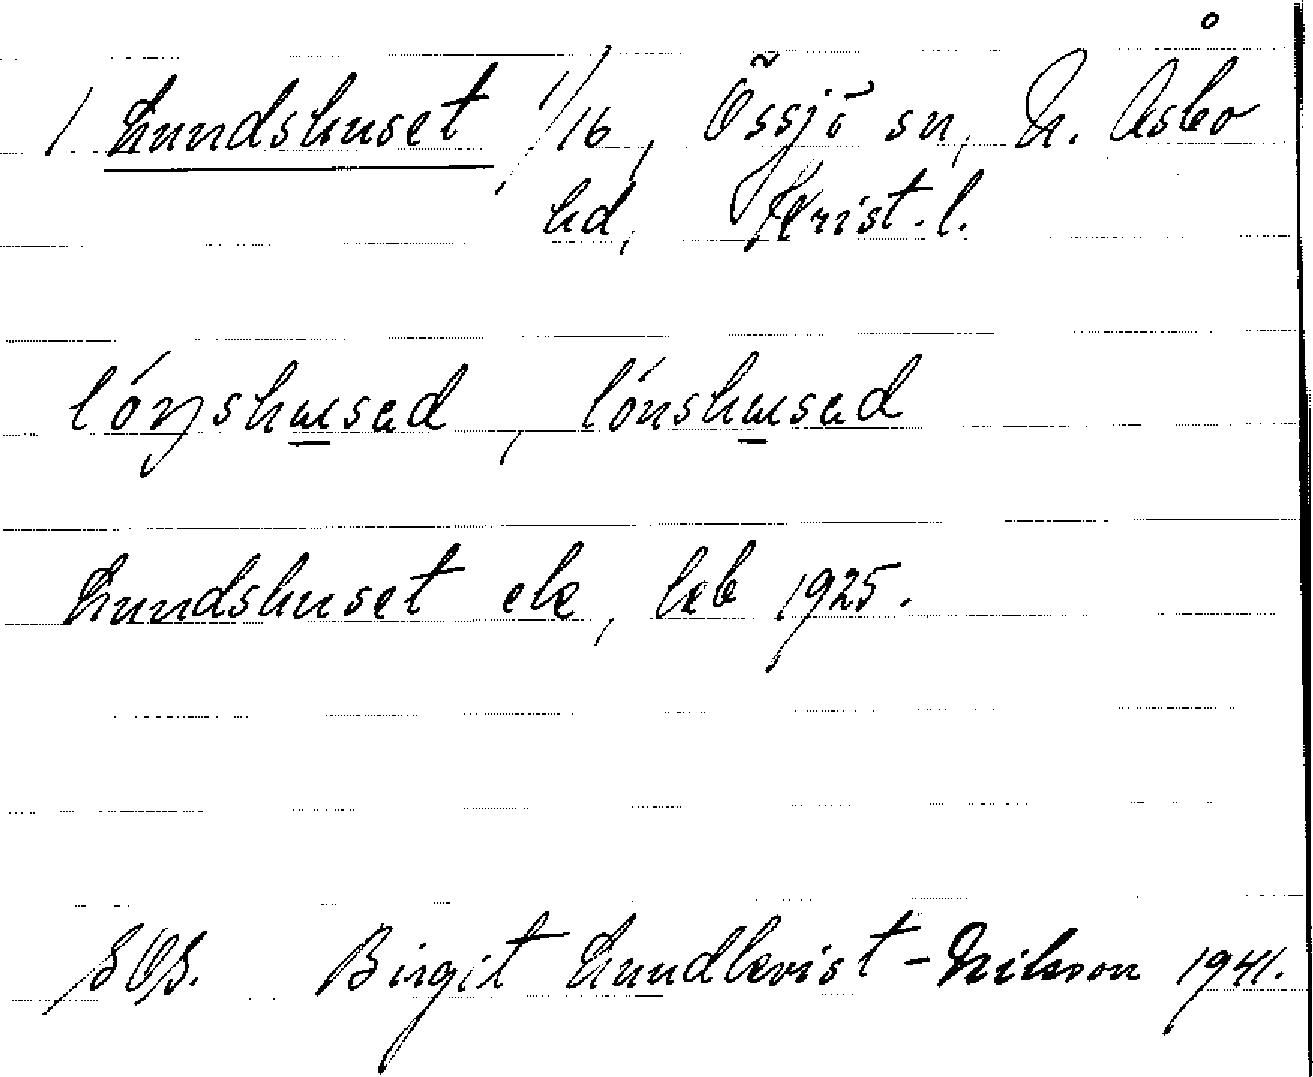 1 Lundshuset 1/16, Össjö sn, N. Åsbo
hd, Krist. l.
lóŋshusad, lónshusad
Lundshuset ek, lkb 1925.
Birgit Lundkvist-Nilsson 1941.